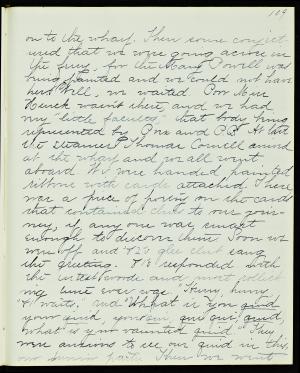 109
on to the wharf. Then some conject-
ured that we were going across in
the ferry, for the Mary Powell was
being painted and we could not have
her. Well, we waited. Poor Miss
wasn't there, and we had
my "little faculty," that body being
represented by Pres and P.P. At last
the steamer Thomas Cornell arrived
at the wharf and we all went
aboard. We were handed painted
ribbons with cards attached. There
was a piece of poetry on the cards
that contained clues to our jour-
ney, if any one was smart
enough to discover them. Soon we
were off, and '82's glee club sang
the greeting. '78 responded with
the cutest words and most
tune ever was. "Hurry, hurry
wait," and "What is you quid
your quid, your quid, quid,
what is your vaunted quid." They
were anxious to see our quid in this,
our Junior party. Then we went